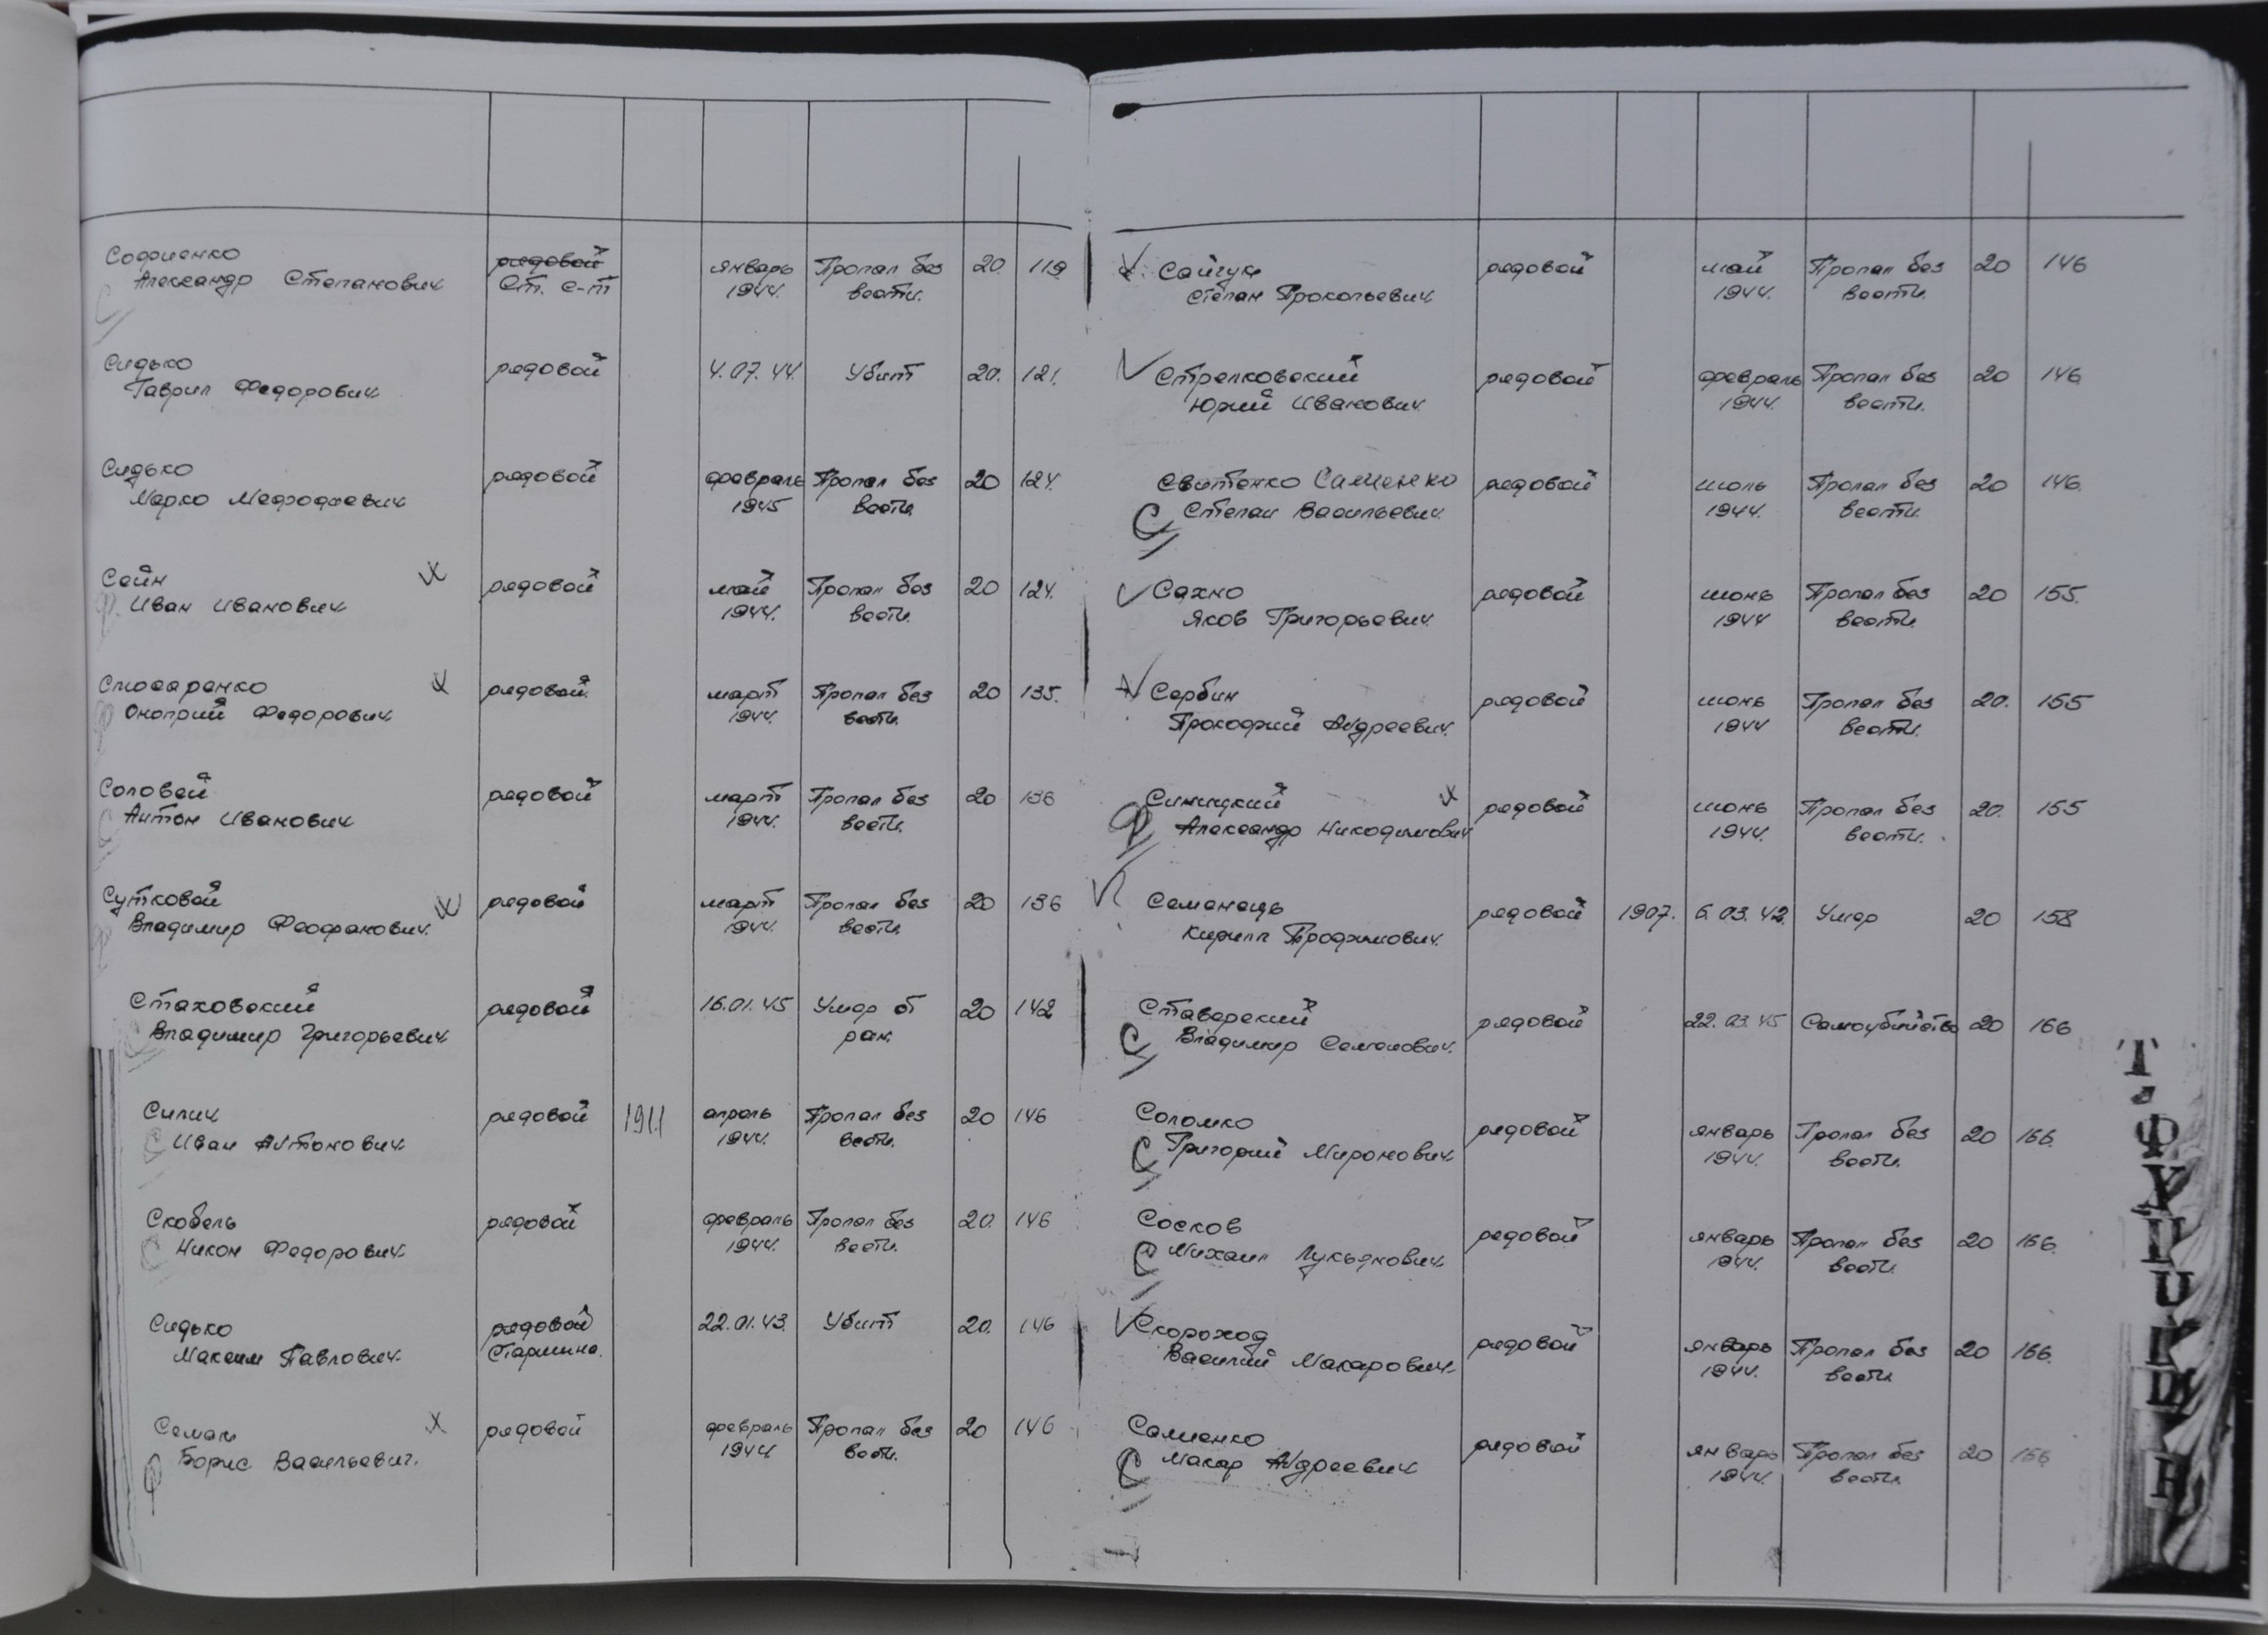 Софиенко рядовой январь Пропал без 20. 119
Александр Степанович Ст. с-т 1944. вести.
Сидько рядовой 4.07.44. Убит 20. 121.
Гаврил Федорович
Сидько рядовой февраль Пропал без 20 124.
Марко Мефодиевич 1945 вести.
Сейн рядовой май Пропал без 20 124.
Иван Иванович 1944. вести.
рядовой. март Пропал без 20 135.
Оноприй Федорович 1944. вести.
Соловей рядовой март Пропал без 20 136
Антон Иванович 1944. вести.
Сутковой рядовой март Пропал без 20 136
Владимир Феофанович. 1944. вести.
Стаховский рядовой 16.01.45 Умер от 20 142
Владимир Григорьевич ран.
Силич рядовой 1911 апрель Пропал без 20 146
Иван Антонович 1944. вести.
Скобель рядовой февраль Пропал без 20. 146
Никон Федорович. 1944. вести.
Сидько рядовой 22.01.43. Убит 20. 146
Максим Павлович. Старшина.
Семан рядовой февраль Пропал без 20 146
Борис Васильевич. 1944 вести.
Сайчук рядовой май Пропал без 20 146
Степан Прокопьевич. 1944. вести.
Стрелковский рядовой февраль Пропал без 20 146
Юрий Иванович. 1944. вести.
Свитенко Саменко рядовой июль Пропал без 20 146.
С Степан Васильевич. 1944. вести.
Сахно рядовой июнь Пропал без 20 155.
Яков Григорьевич. 1944 вести.
Сербин рядовой июнь Пропал без 20. 155
Прокофий Андреевич. 1944 вести.
Синицкий рядовой июнь Пропал без 20. 155
Александр Никодимович 1944. вести.
Семенець рядовой 1907. 6.03.42. Умер 20 158
Кирилл Трофимович.
Ставерский рядовой 22.03.45 Самоубийство 20 166
С Владимир Семенович.
Соломко рядовой январь Пропал без 20 166.
С Григорий Миронович. 1944. вести.
Сосков рядовой январь Пропал без 20 166.
С Михаил Лукьянович. 1944. вести.
Скороход рядовой январь Пропал без 20 166.
Василий Макарович. 1944. вести.
Саменко рядовой январь Пропал без 20 166
С Макар Андреевич 1944. вести.
Т
Ф
У